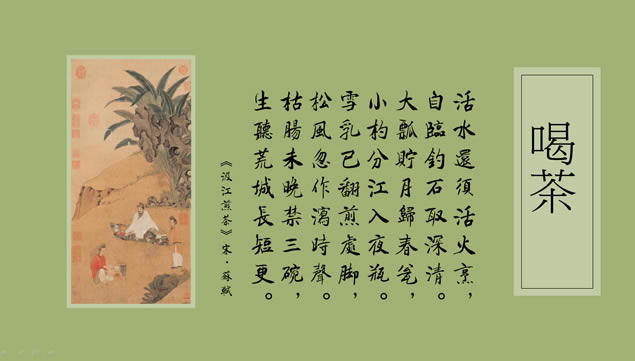 喝茶
活水還須活火烹，
自臨釣石取深清。
大瓢貯月歸春瓮，
小杓分江入夜瓶。
雪乳已翻煎處脚，
松風忽作瀉時聲。
枯腸未晚禁三碗，
生聽荒城長短更。
《汲江煎茶》宋·蘇軾